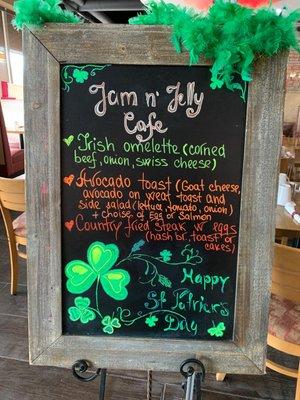 Jam n' Jelly
Cafe
Irish omelette (corned
beef, onion, swiss cheese)
Avocado toast (Goat cheese,
avocado on weat toast and
side salad (lettuce, tomato, onion)
+ choise of Egg or Salmon
Country fried steak w eggs
(hash br, toast or
cakes)
Happy
St Patrick's
Day